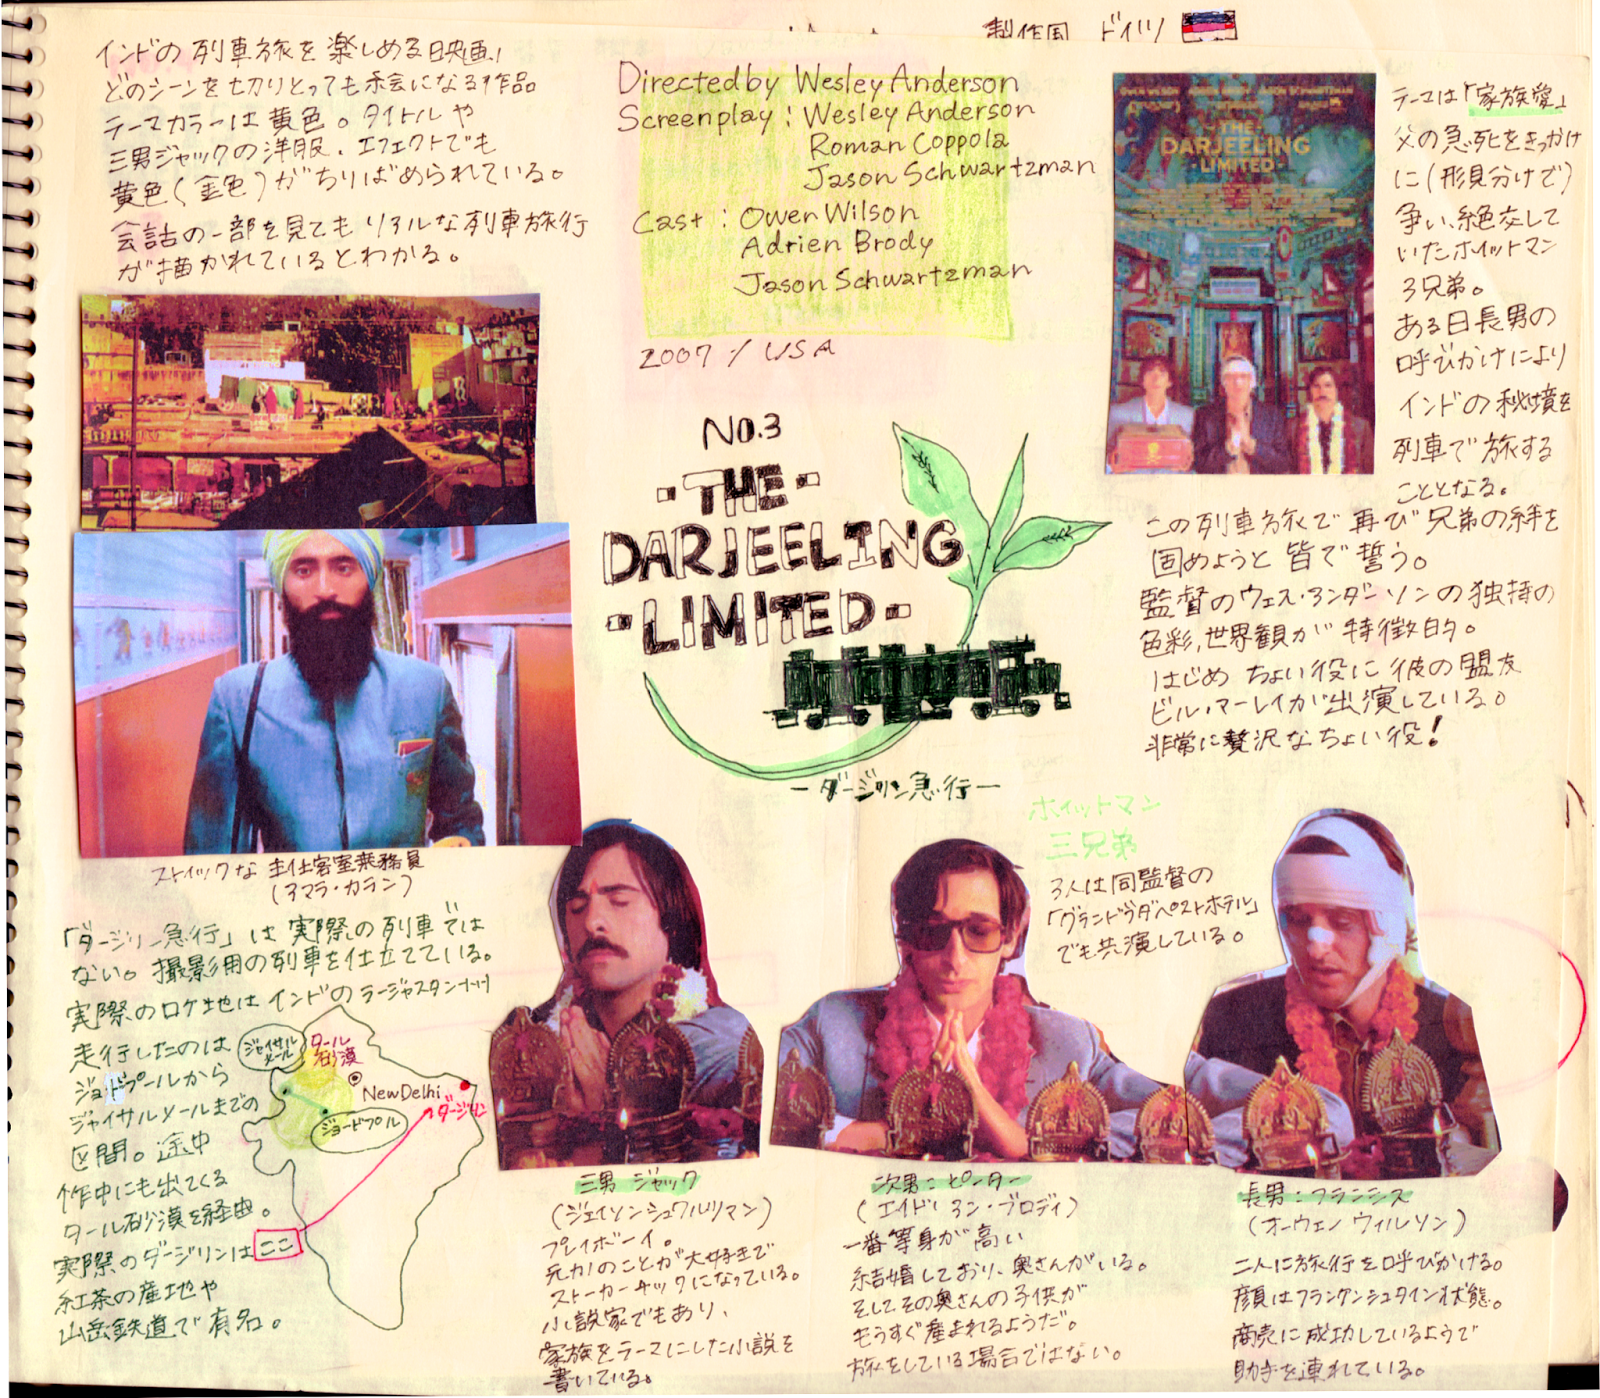 製作国 ドイツ
インドの列車旅を楽しめる映画！
どのシーンを切りとっても絵になる作品。
テーマカラーは黄色。タイトルや
三男ジャックの洋服、エフェクトでも
黄色(金色)がちりばめられている。
会話の一部を見てもリアルな列車旅行
が描かれているとわかる。
Directed by Wesley Anderson
Screenplay : Wesley Anderson
Roman Coppola
Jason Schwartzman
Cast : Owen Wilson
Adrien Brody
Jason Schwartzman
2007 / USA
THE
DARJEELING
LIMITED
テーマは「家族愛」
父の急死をきっかけ
に(形見分けで)
争い、絶交して
いたホイットマン
3兄弟。
ある日長男の
呼びかけにより
インドの秘境を
列車で旅する
こととなる。
この列車旅で再び兄弟の絆を
固めようと皆で誓う。
監督のウェス・アンダーソンの独特の
色彩、世界観が特徴的。
はじめちょい役に彼の盟友
ビル・マーレイが出演している。
非常に贅沢なちょい役！
NO.3
THE
DARJEELING
LIMITED
ーダージリン急行ー
ストイックな主任客室乗務員
(アマラ・カラン)
「ダージリン急行」は実際の列車では
ない。撮影用の列車を仕立てている。
実際のロケ地はインドのラージャスタン州
走行したのは
ジョドプールから
ジャイサルメールまでの
区間。途中
作中にも出てくる
タール砂漠を経由。
実際のダージリンはここ
紅茶の産地や
山岳鉄道で有名。
ジャイサル
メール
タール
砂漠
New Delhi
ダージリン
ジョードプル
ホイットマン
三兄弟
3人は同監督の
「グランドブダペストホテル」
でも共演している。
三男 ジャック
(ジェイソンシュワルツマン)
プレイボーイ。
元カノのことが大好きで
ストーカーチックになっている。
小説家でもあり、
家族をテーマにした小説を
書いている。
次男：ピーター
(エイドリアン・ブロディ)
一番等身が高い
結婚しており、奥さんがいる。
そしてその奥さんの子供が
もうすぐ産まれるようだ。
旅をしている場合ではない。
長男：フランシス
(オーウェン ウィルソン)
二人に旅行を呼びかける。
顔はフランケンシュタイン状態。
商売に成功しているようで
助手を連れている。